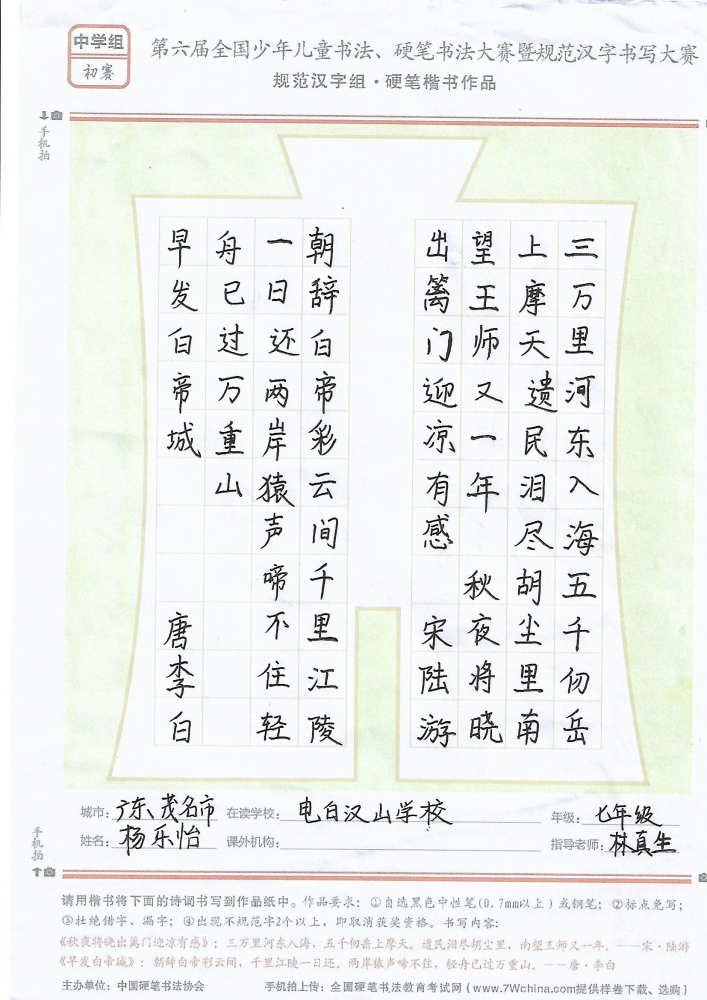 中学组
初赛
第六届全国少年儿童书法、硬笔书法大赛暨规范汉字书写大赛
规范汉字组·硬笔楷书作品
手机拍
三万里河东入海五千仞岳
上摩天遗民泪尽胡尘里南
望王师又一年 秋夜将晓
出篱门迎凉有感 宋陆游
朝辞白帝彩云间千里江陵
一日还两岸猿声啼不住轻
舟已过万重山
早发白帝城 唐李白
城市：广东茂名市 在读学校：电白汉山学校 年级：七年级
姓名：杨乐怡 课外机构： 指导老师：林真生
手机拍
请用楷书将下面的诗词书写到作品纸中。作品要求：①自选黑色中性笔(0.7mm以上)或钢笔；②标点免写；
③杜绝错字、漏字；④出现不规范字2个以上，即取消获奖资格。书写内容：
《秋夜将晓出篱门迎凉有感》：三万里河东入海，五千仞岳上摩天。遗民泪尽胡尘里，南望王师又一年。——宋·陆游
《早发白帝城》：朝辞白帝彩云间，千里江陵一日还。两岸猿声啼不住，轻舟已过万重山。——唐·李白
主办单位：中国硬笔书法协会 手机拍上传：全国硬笔书法教育考试网（www.7Wchina.com提供样卷下载、选购）